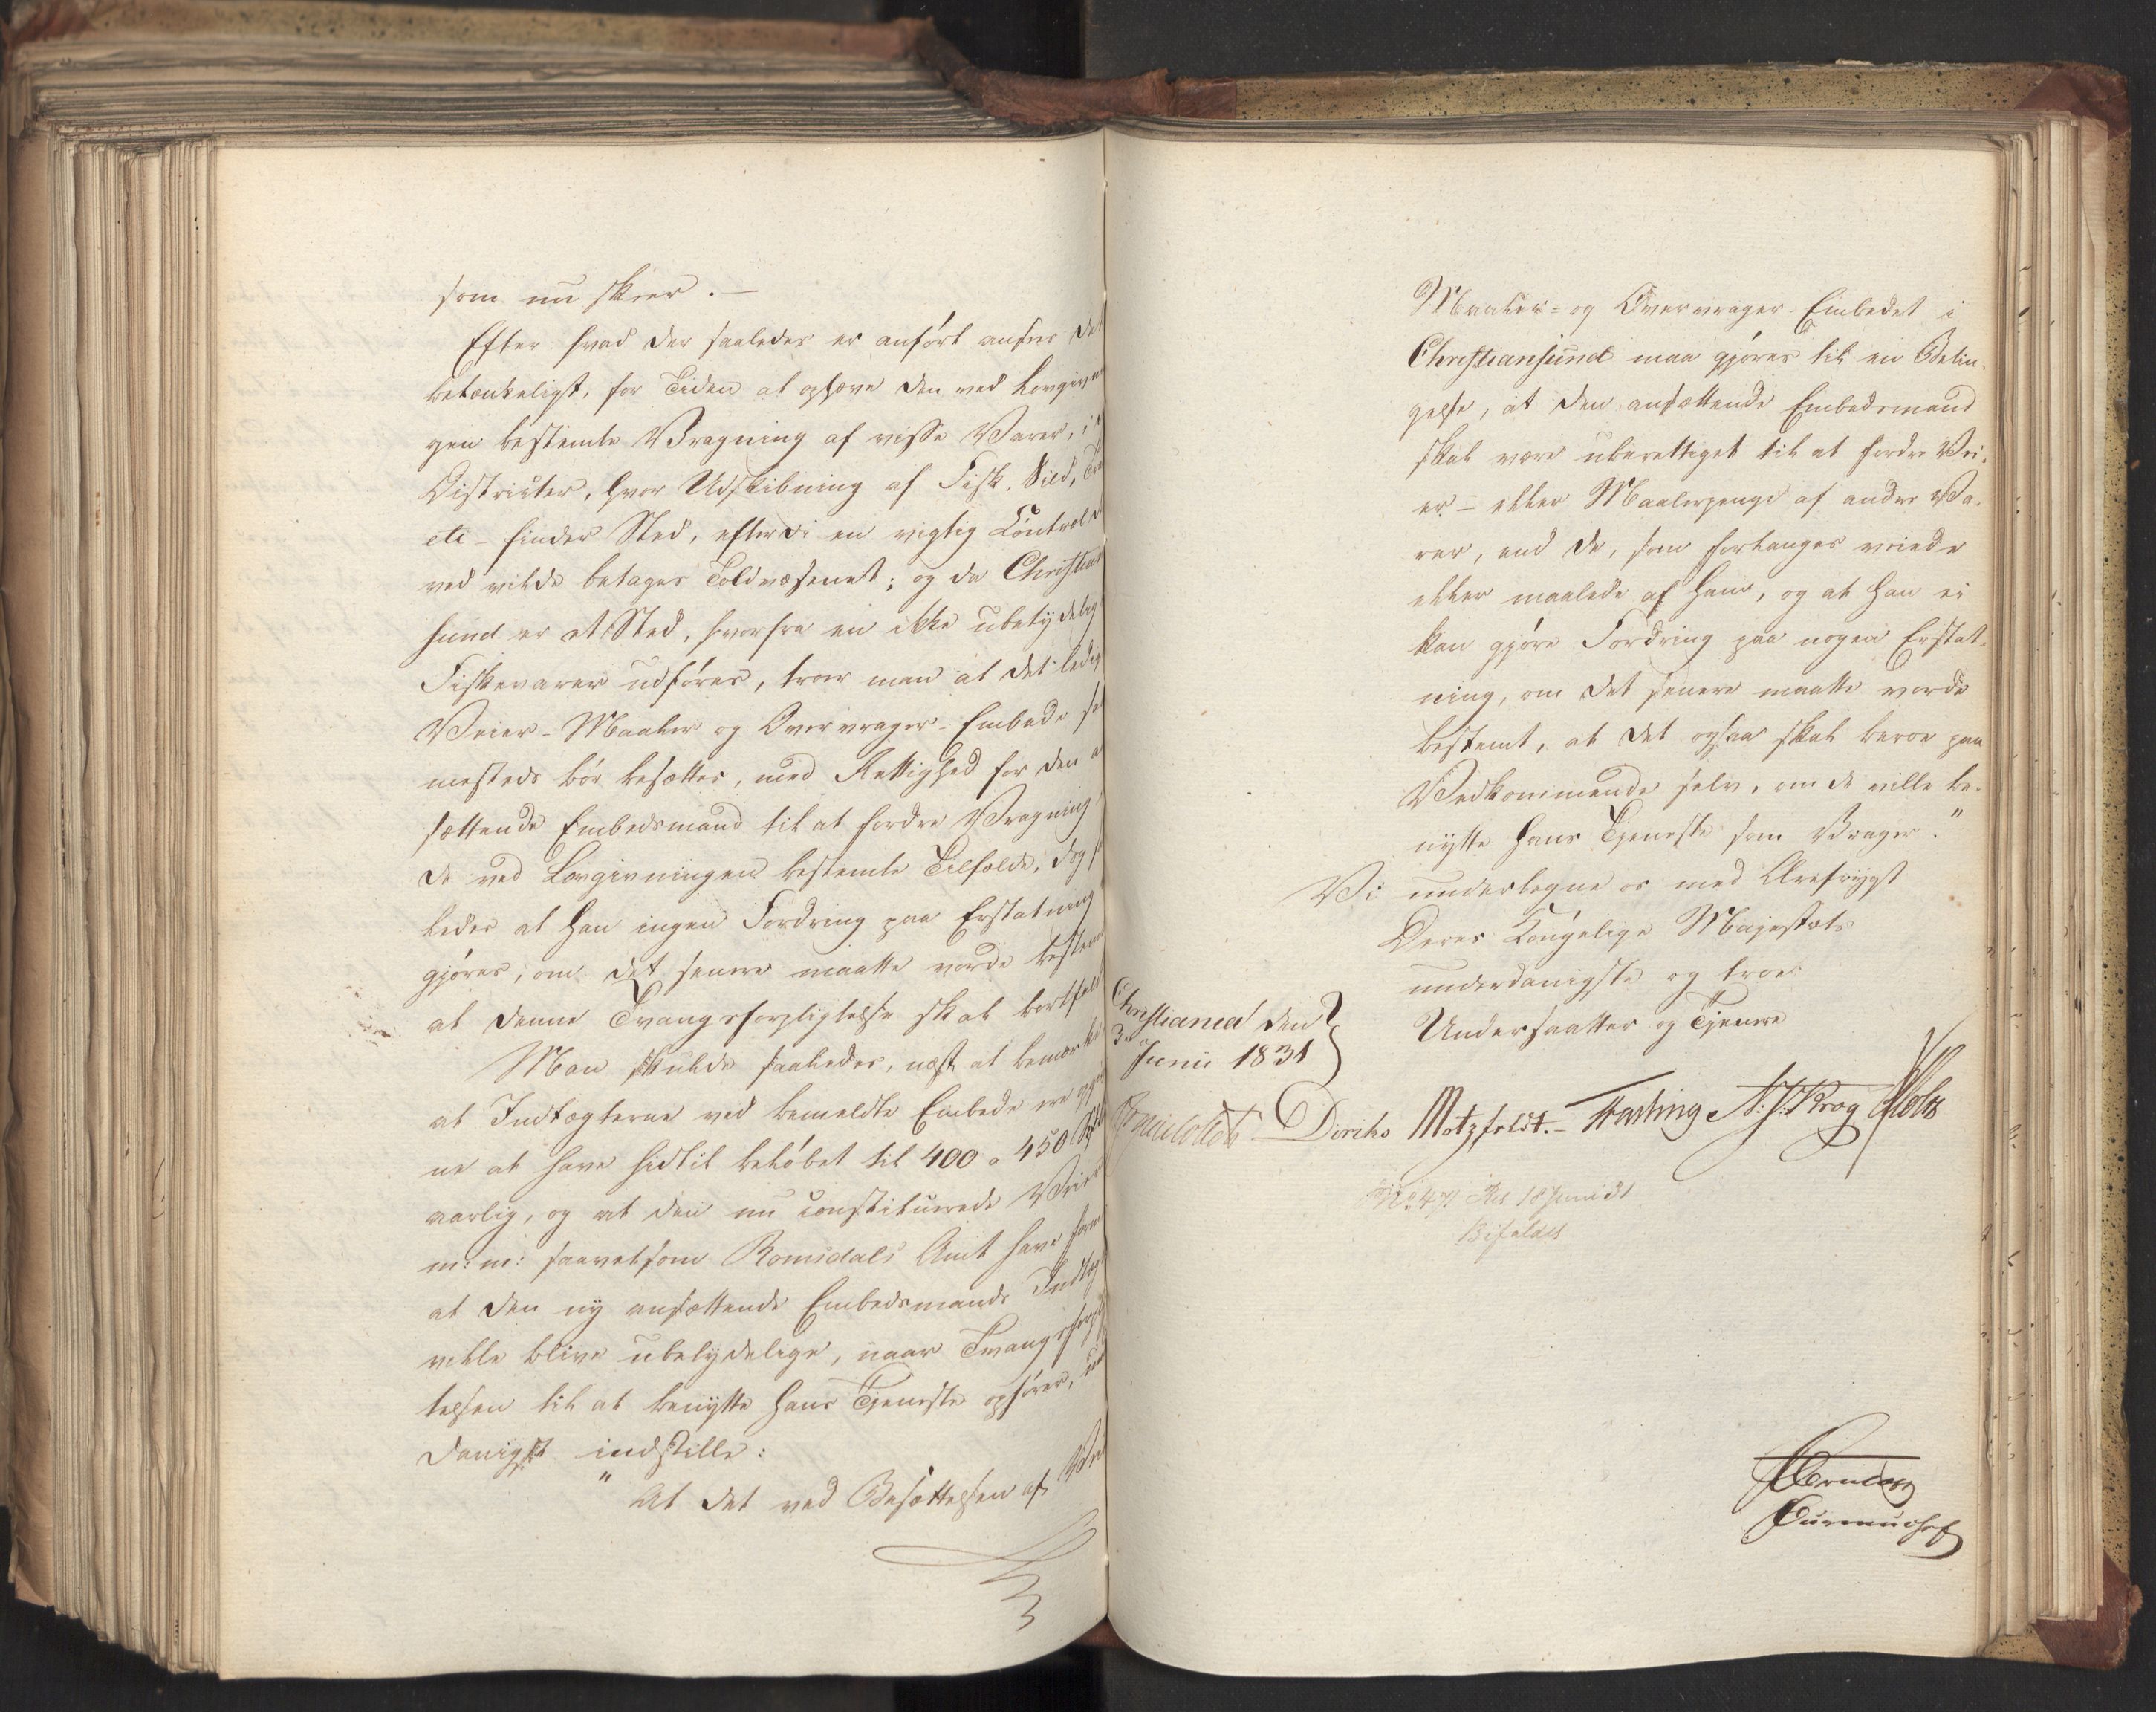 som nu skeer. —
Efter hvad der saaledes er anført ansees det
betænkeligt, for Tiden at ophæve den ved Lovgivnin
gen bestemte Vragning af visse Varer, i
Districter, hvor Udskibning af Fisk, Sild, Tran
etc – finder Sted, efterdi en vigtig Control der
ved vilde betages Toldvæsenet; og da Christian
sund er et Sted, hvorfra en ikke ubetydelig
Fiskevarer udføres, troer man at det ledige
Veier- Maaler og Overvrager-Embede sam
mesteds bør besættes, med Rettighed for den an
sættende Embedsmand til at fordre Vragning i
de ved Lovgivningen bestemte Tilfælde, dog saa
ledes at han ingen Fordring paa Erstatning
gjøres, om det senere maatte vorde bestemt
at denne Tvangsforpligtelse skal bortfalde
Man skulde saaledes, næst at bemærke
at Indtægterne ved bemeldte Embede ere opgiv
ne at have hidtil beløbet til 400 a 450 Spd
aarlig, og at den nu constituerede Veier
m: m: saavelsom Romsdals Amt have formeent
at den ny ansættende Embedsmands Indtægter
ville blive ubetydelige, naar Tvangsforplig
telsen til at benytte hans Tjeneste ophører, under
danigst indstille:
" At det ved Besættelsen af Veier
Maaler- og Overvrager-Embedet i
Christiansund maa gjøres til en Betin-
gelse, at den ansættende Embedsmand
skal være uberettiget til at fordre Vei-
er – eller Maalerpenge af andre Va-
rer, end de, som forlanges veiede
eller maalede af ham, og at han ei
kan gjøre Fordring paa nogen Erstat-
ning, om det senere maatte vorde
bestemt, at det ogsaa skal beroe paa
Vedkommende selv, om de ville be-
nytte hans Tjeneste som Vrager."
Vi undertegne os med Ærefrygt
Deres Kongelige Majestæts
underdanigste og troe
Undersaatter og Tjenere
Christiania den
3die Junii 1831
Diriks Motzfeldt. – Fasting N: J: Krog Holst
No 47 Res 18 Juni 31
Bifaldes